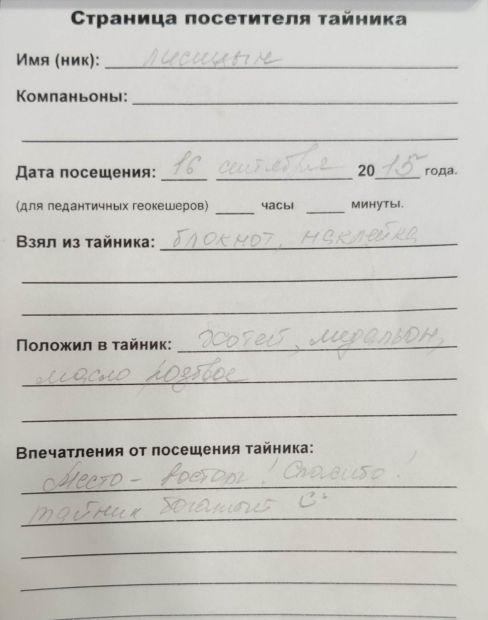 Страница посетителя тайника
Имя (ник): лисицын
Компаньоны:
Дата посещения: 16 сентября 2015 года.
(для педантичных геокешеров) часы минуты.
Взял из тайника: блокнот, наклейка
Положил в тайник: Хотей, медальон,
масло розовое
Впечатления от посещения тайника:
Место - восторг! Спасибо!
тайник богатый